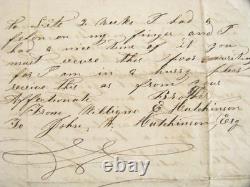 2 weeks I had a
felon on my finger and I
had a nice time of it you
must excuse this poor
for I am in a hurry please
receive this as from your
Affectionate Brother
From E Hutchinson
To John W Hutchinson Esq